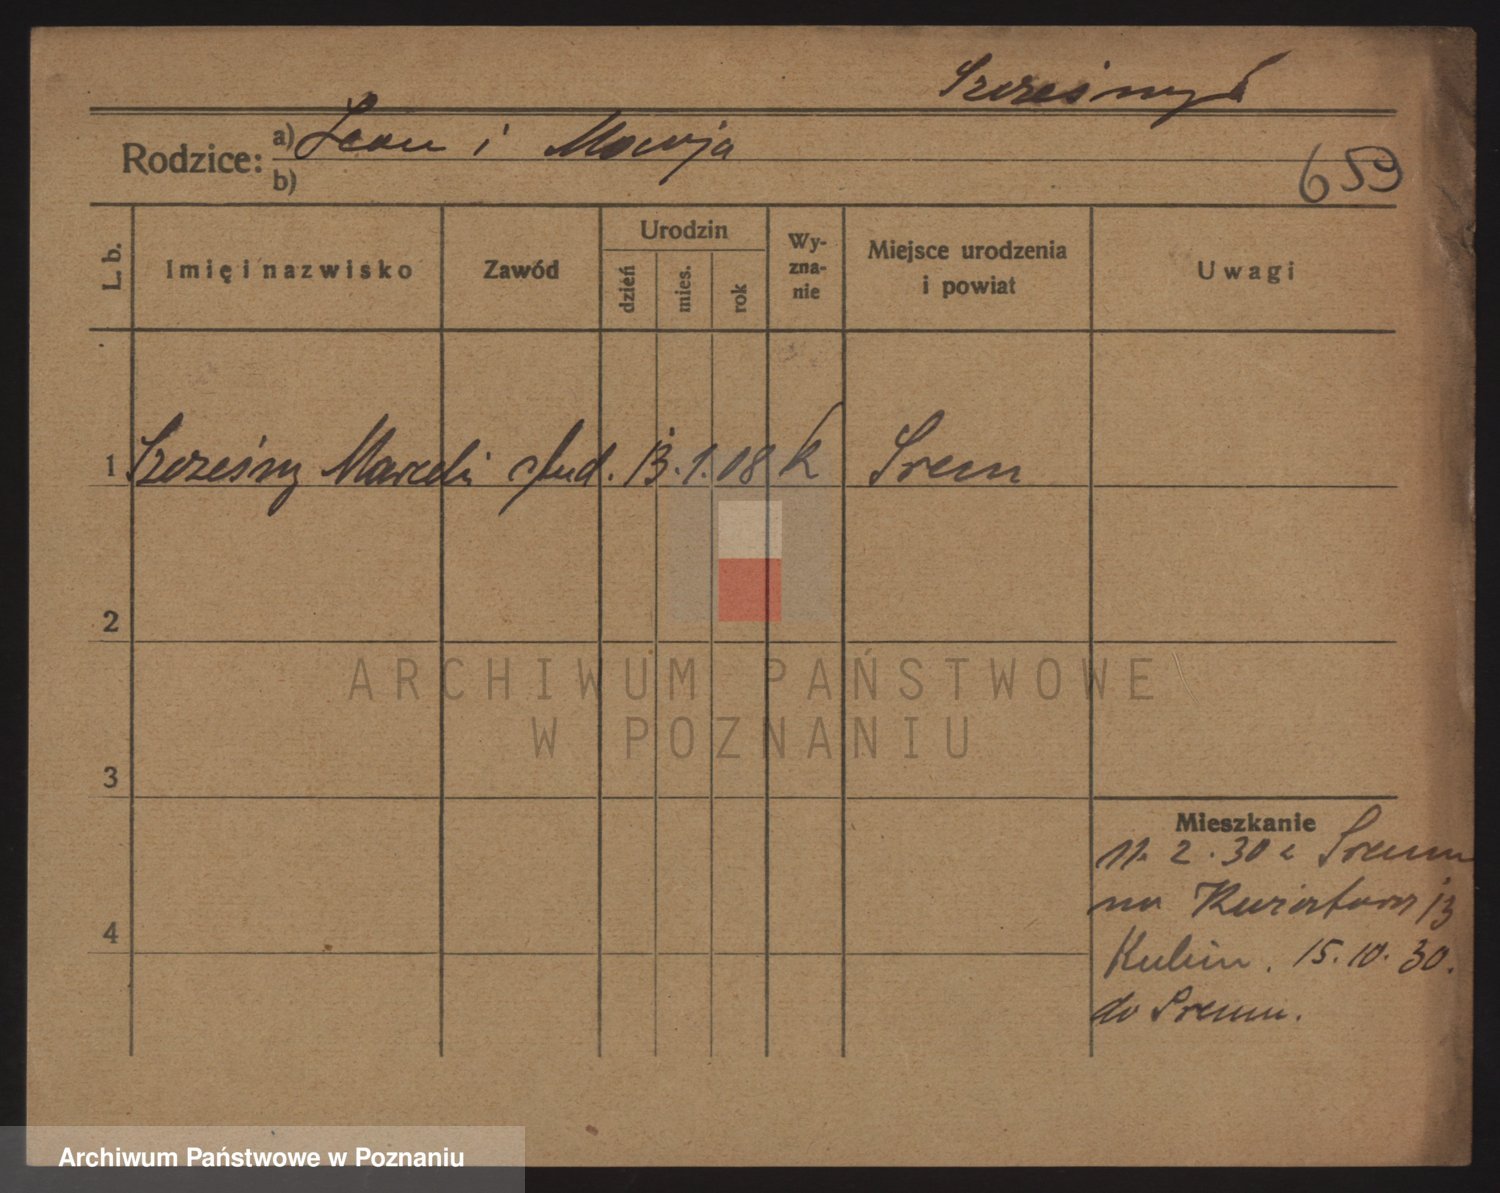 Szcześny
Rodzice: a) Leon i Marja
b)
659
L. b. Imię i nazwisko Zawód Urodzin dzień mies. rok Wy-zna-nie Miejsce urodzenia i powiat Uwagi
1 Szcześny Marceli stud. 13. 1. 08 k Śrem
2
ARCHIWUM PAŃSTWOWE
W POZNANIU
3
Mieszkanie
11. 2. 30 z Śremu
na 13
4
15. 10. 30.
do Śremu.
Archiwum Państwowe w Poznaniu